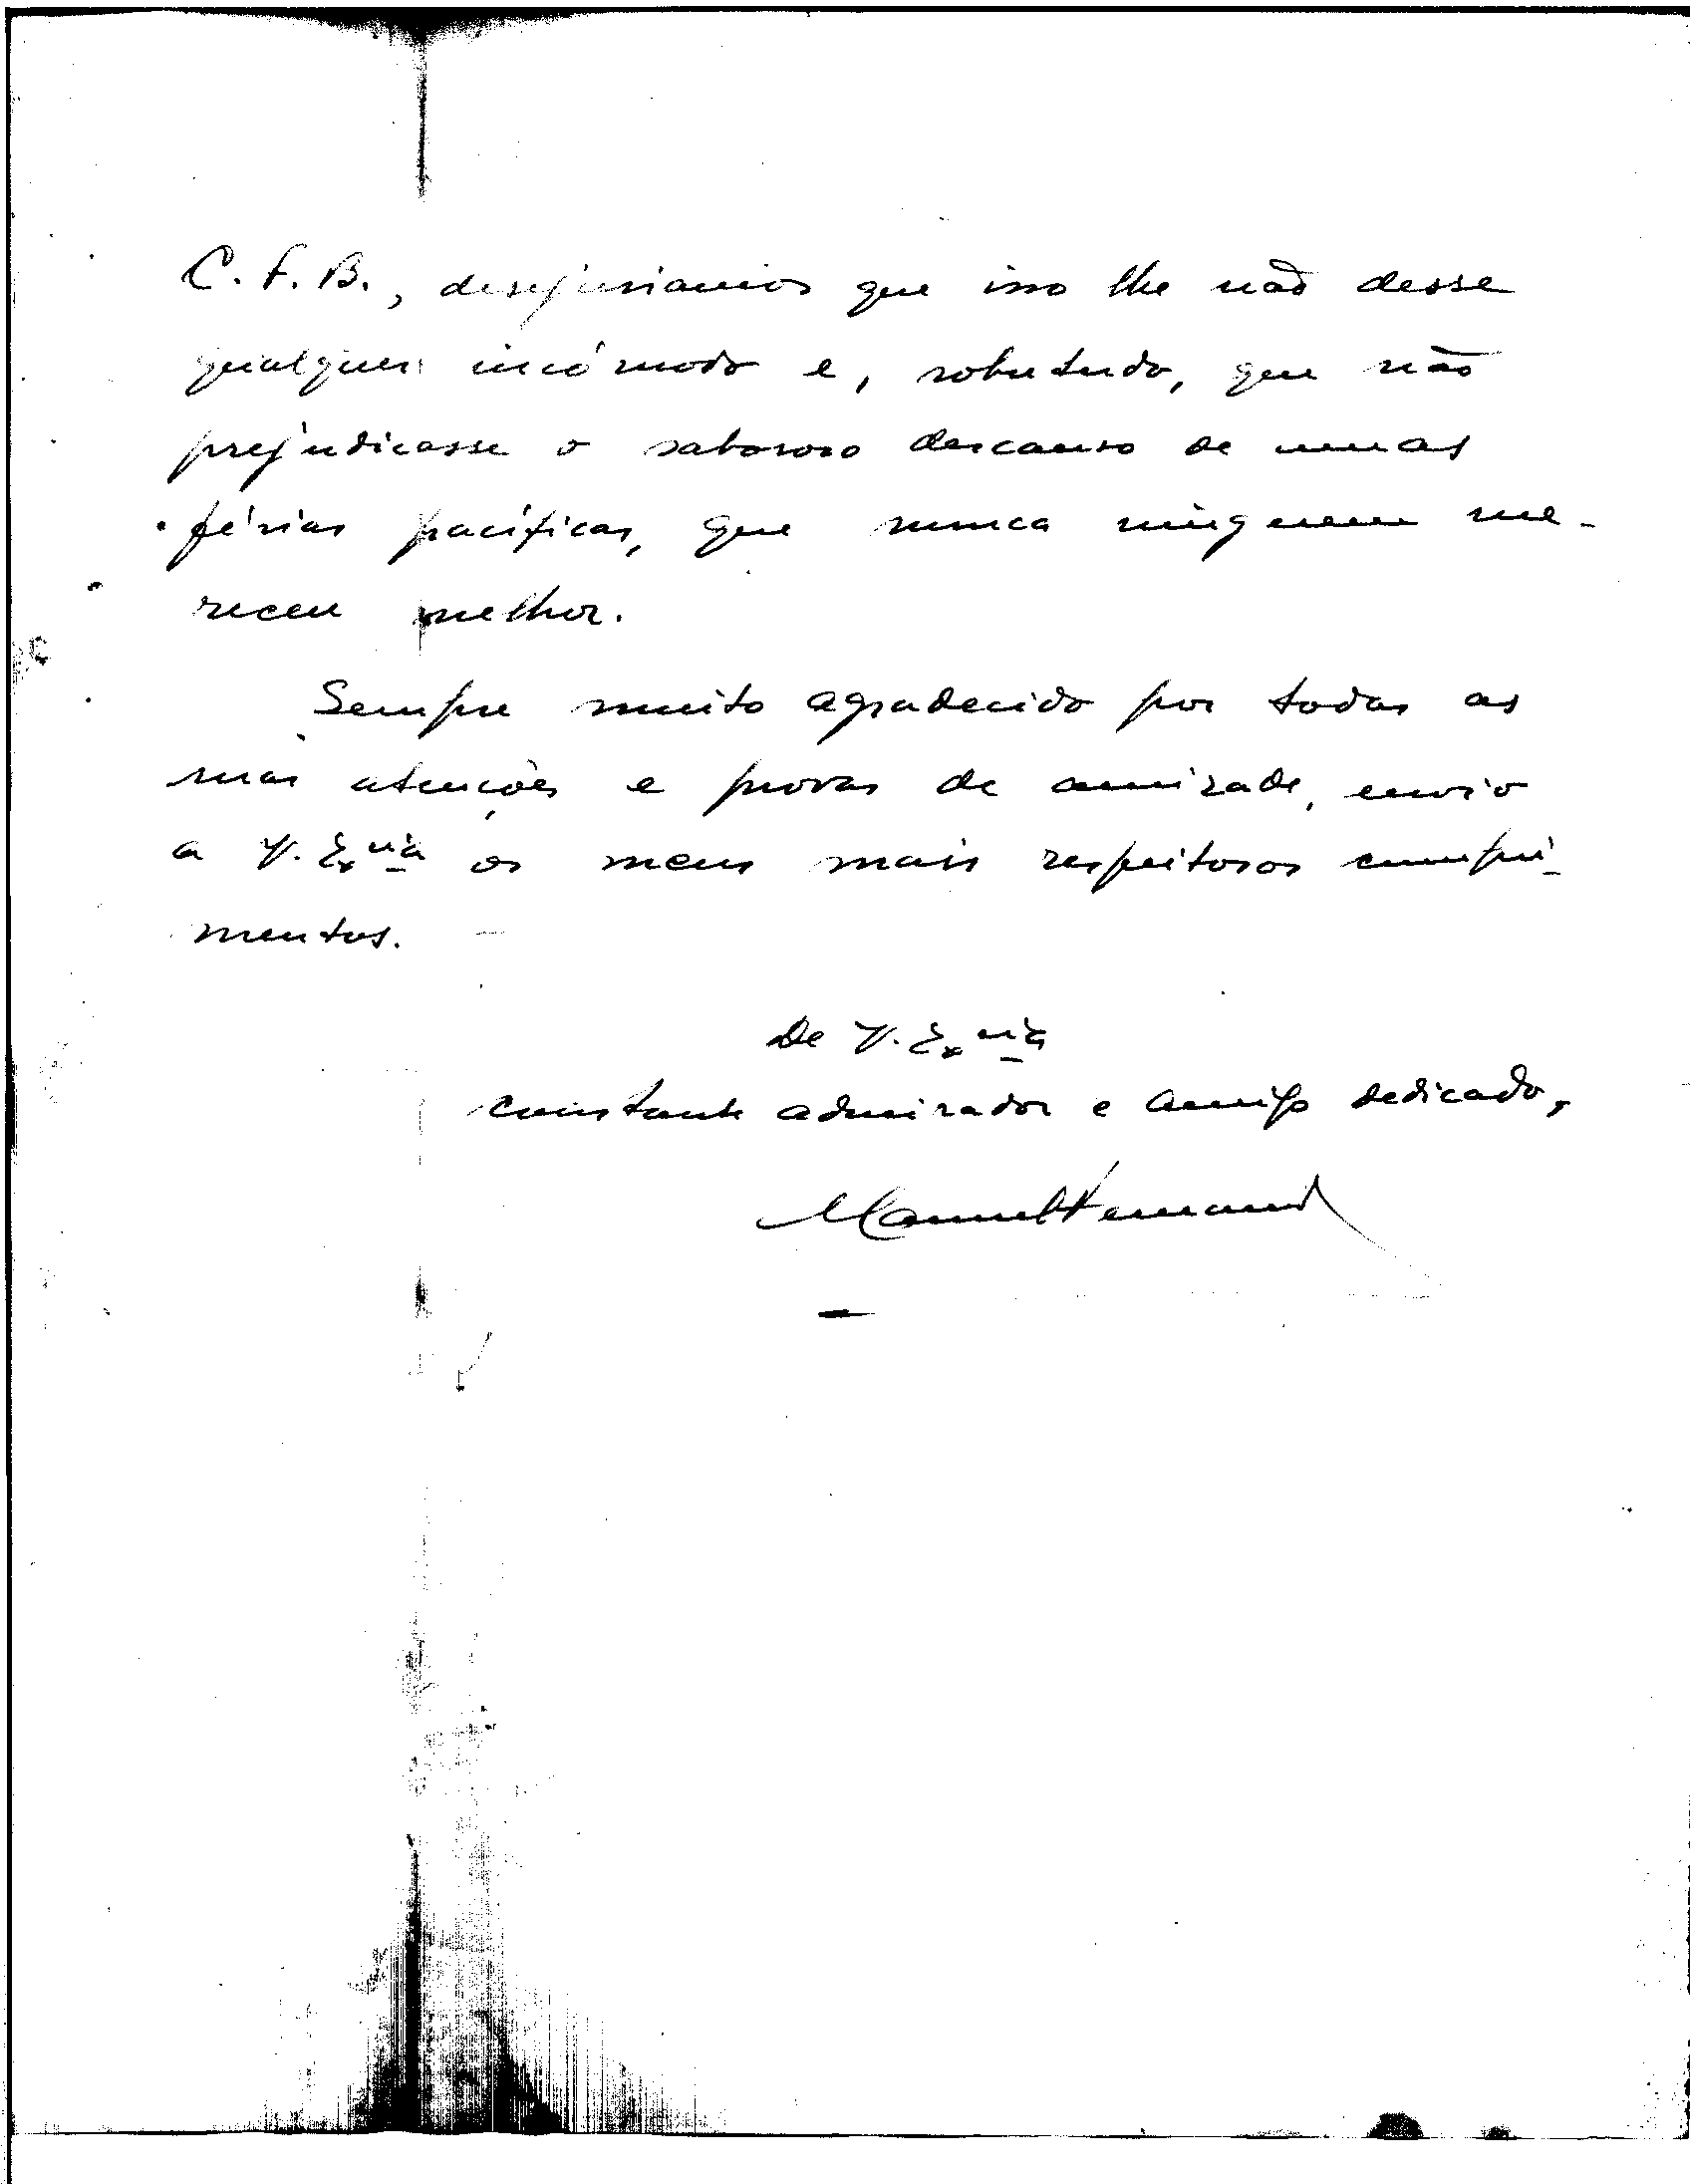 C. F. B., desejariamos que isso lhe não desse
qualquer incómodo e, sobretudo, que não
prejudicasse o saboroso descanso de umas
férias pacíficas, que nunca ninguem me-
receu melhor.
Sempre muito agradecido por todas as
suas atenções e provas de amizade, envio
a V. Exᵃ os meus mais respeitosos cumpri-
mentos.
De V. Exᵃ
constante admirador e amigo dedicado,
Manuel